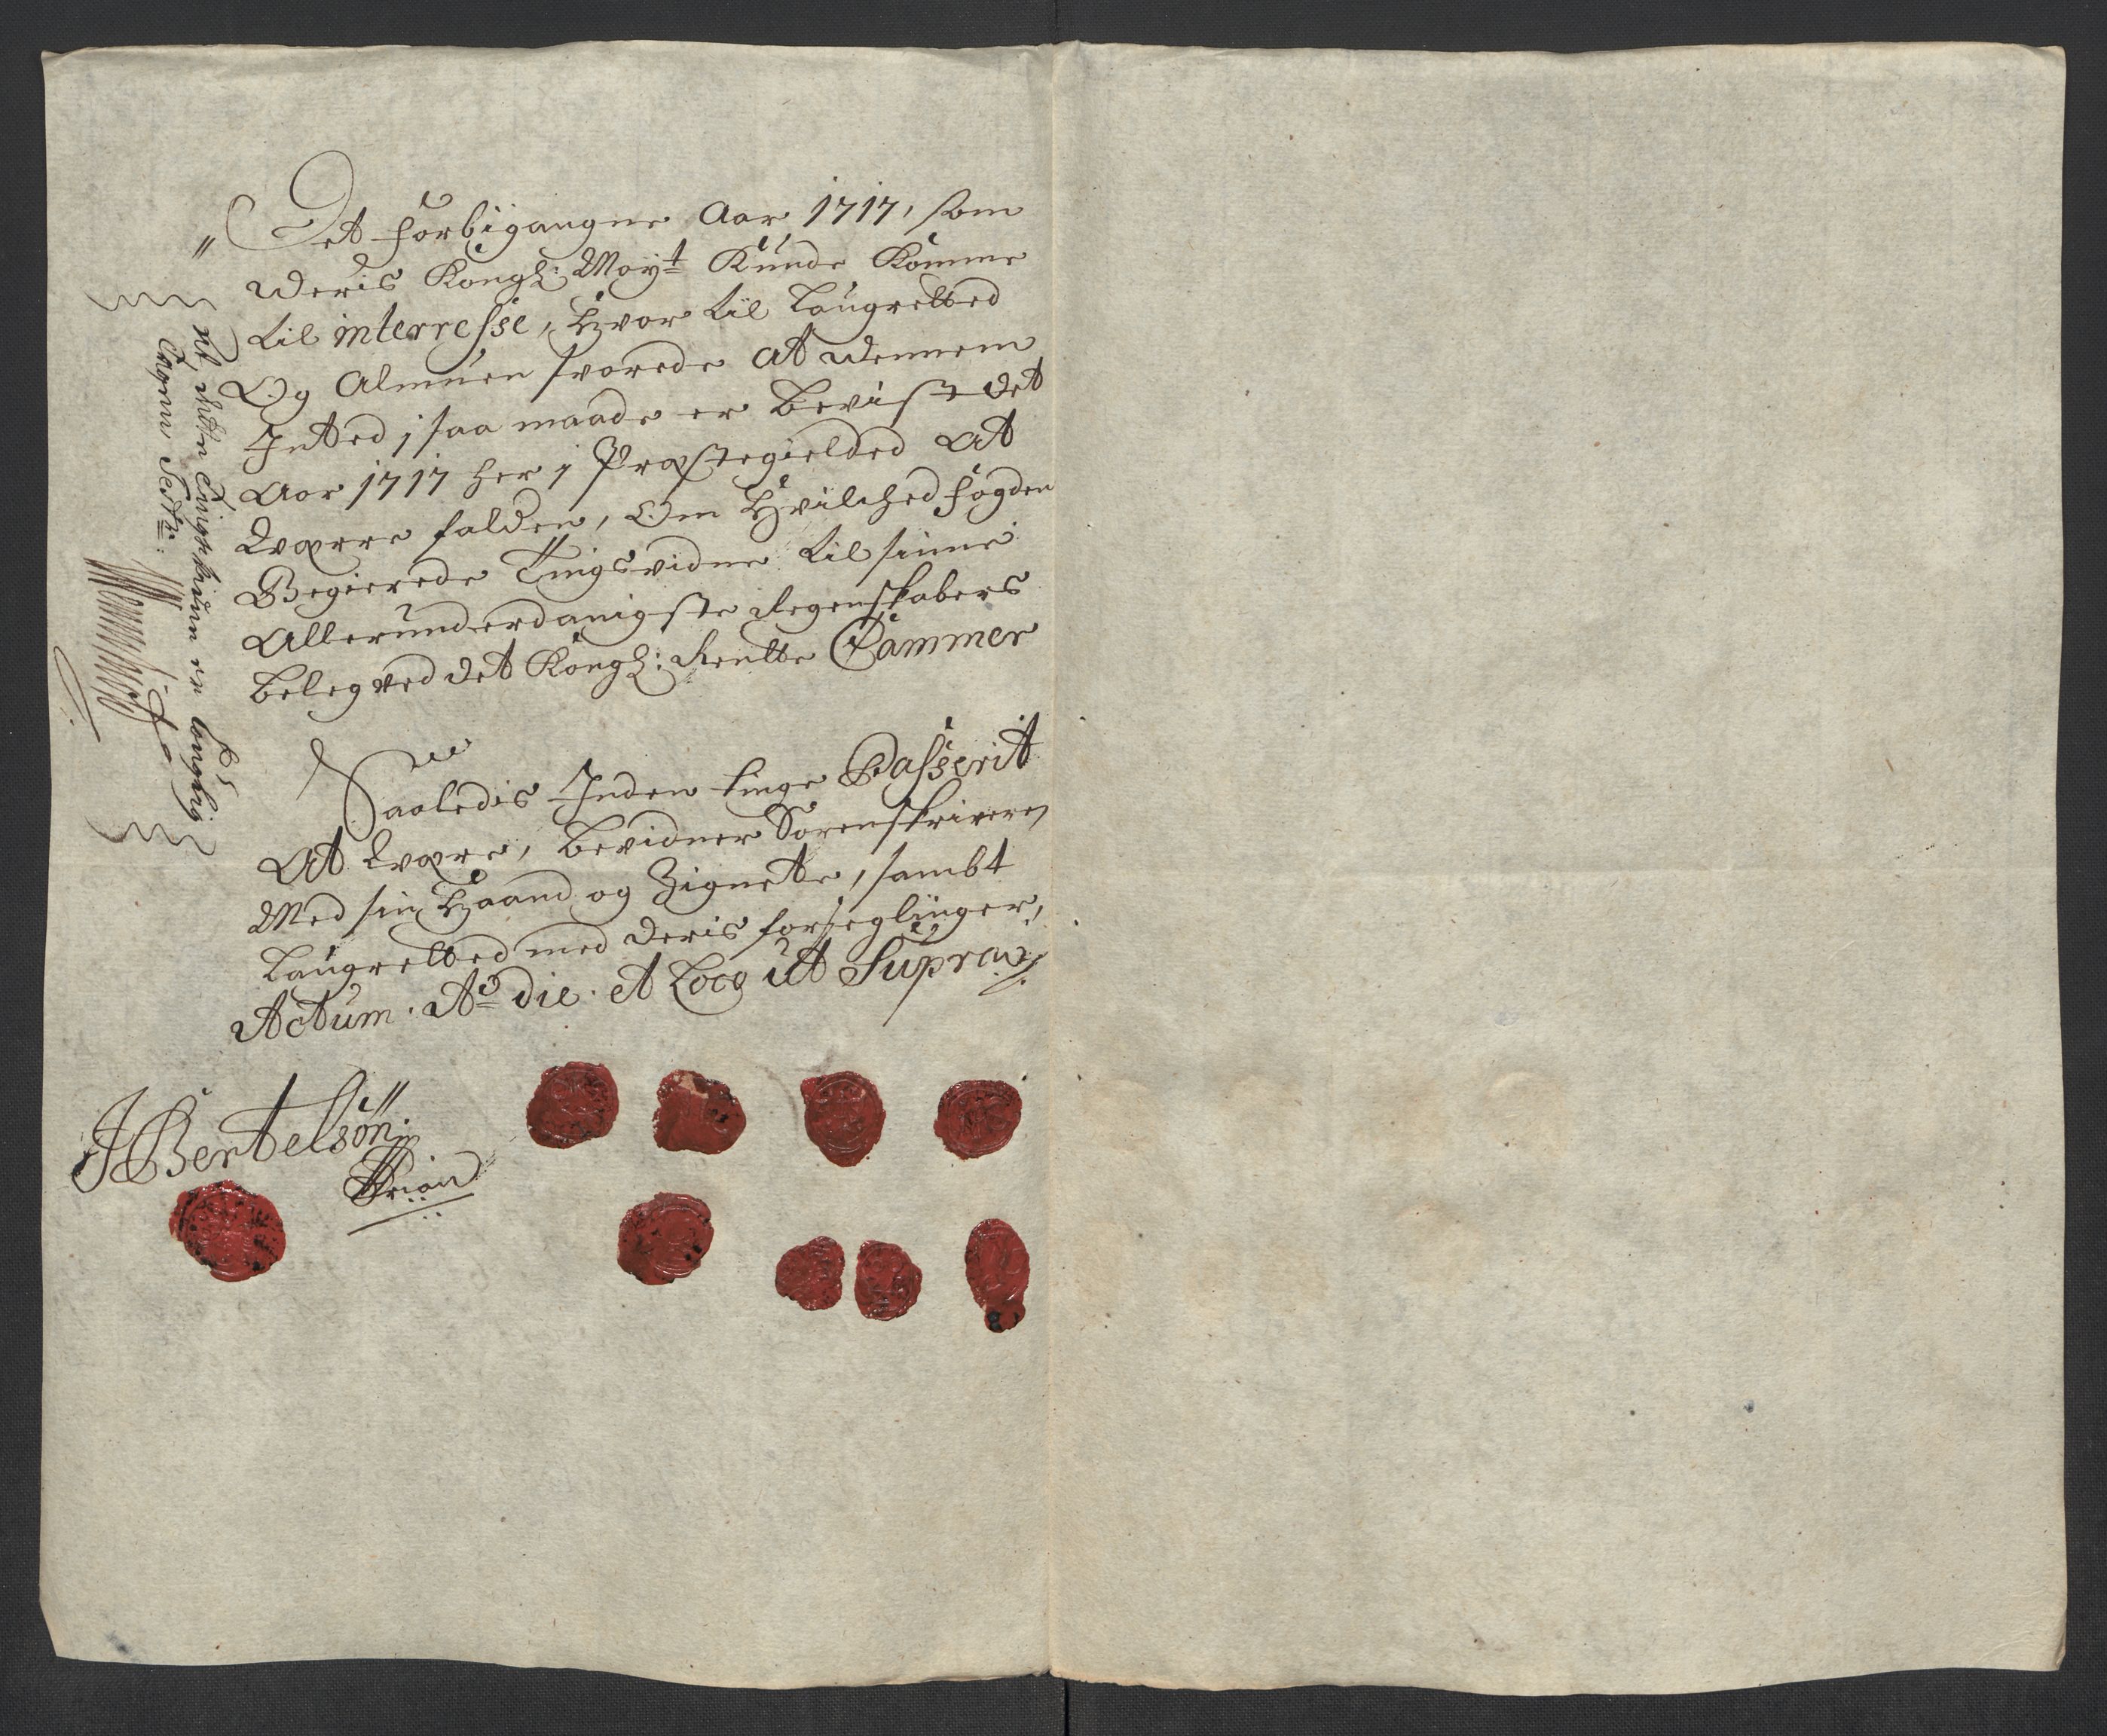 Det forbigangne Aar 1717, som
Deris Kongl: Mayt Kunde Komme
til interresse, hvor til Laugretted
Og Almuen svarede at dennem
Intted j saa maade er bevist det
Aar 1717 her j Præstegielded at
være falden, Om hvilched fogden
Begierede Tingsvidne til sinne
Allerunderdanigste Regenskabers
beleg ved det Kongl: Rentte Cammer
Saaledis Inden tinge Passerit
At være, bevidner Sorenskriveren
Med sin haand og Zignette, sambt
Laugretted med deris forseglinger,
Actum. Ao die. et Loco ut Supra
JBertelsøn